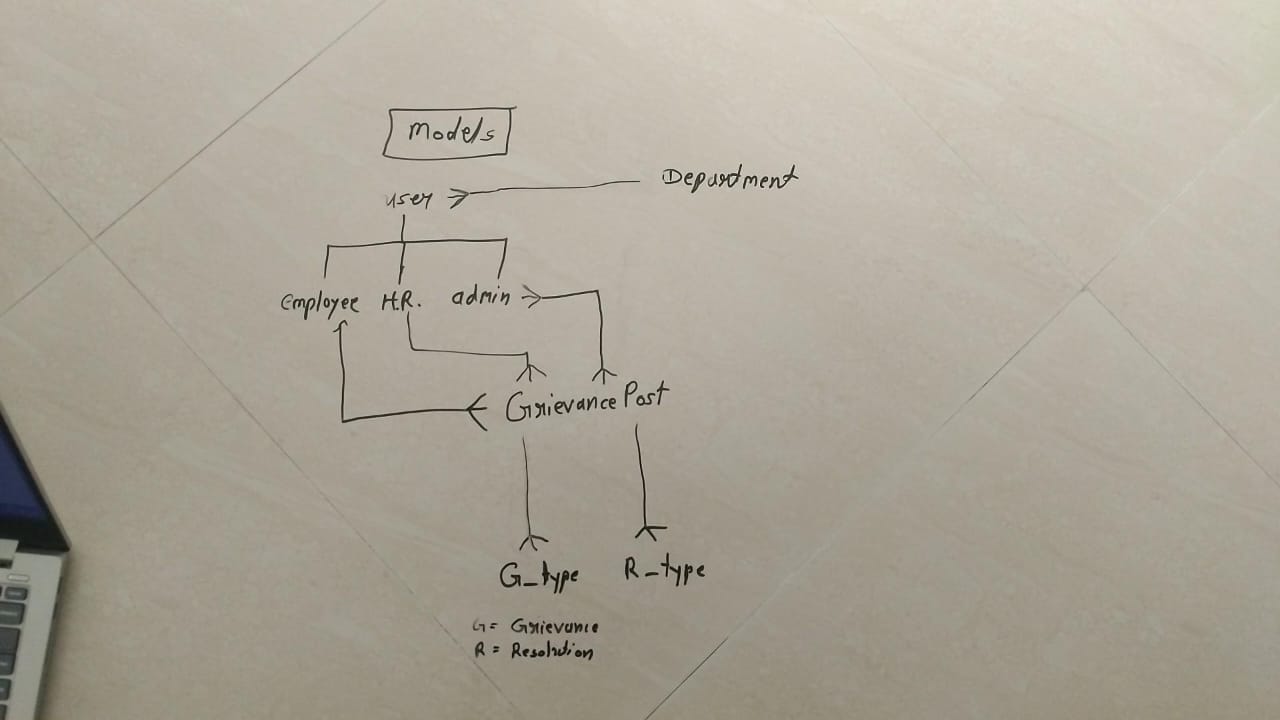 Models
user Department
Employee H.R. admin
Grievance Post
G_type R_type
G = Grievance
R = Resolution